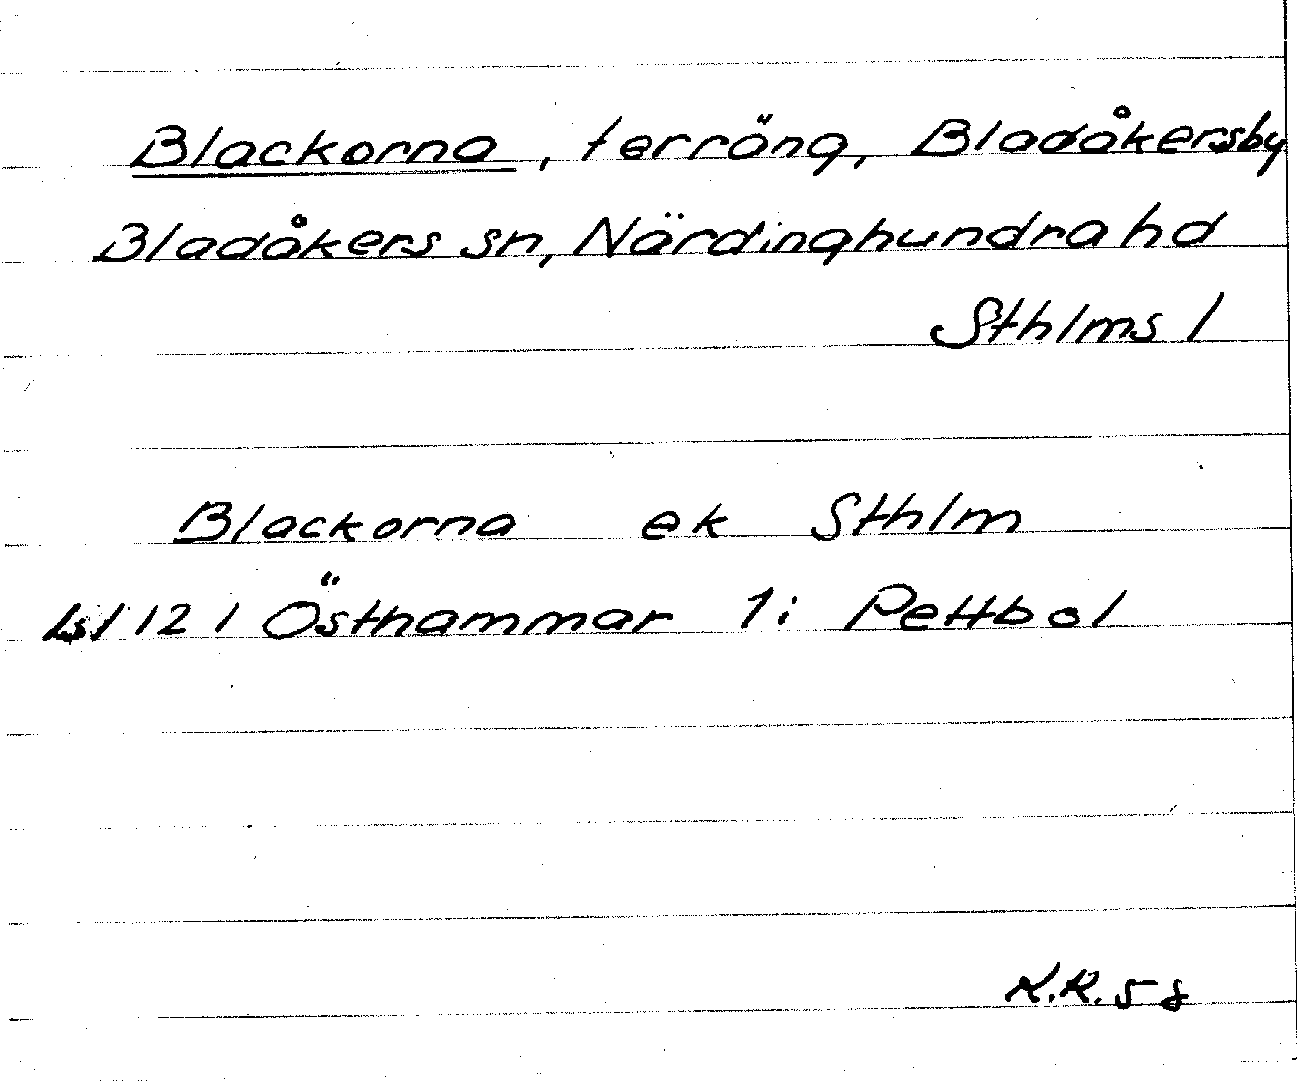 Blackorna, terräng, Bladåkersby
Bladåkers sn, Närdinghundra hd
Sthlms l
Blackorna ek Sthlm
12 I Östhammar 1i Pettbol
K.R. 58